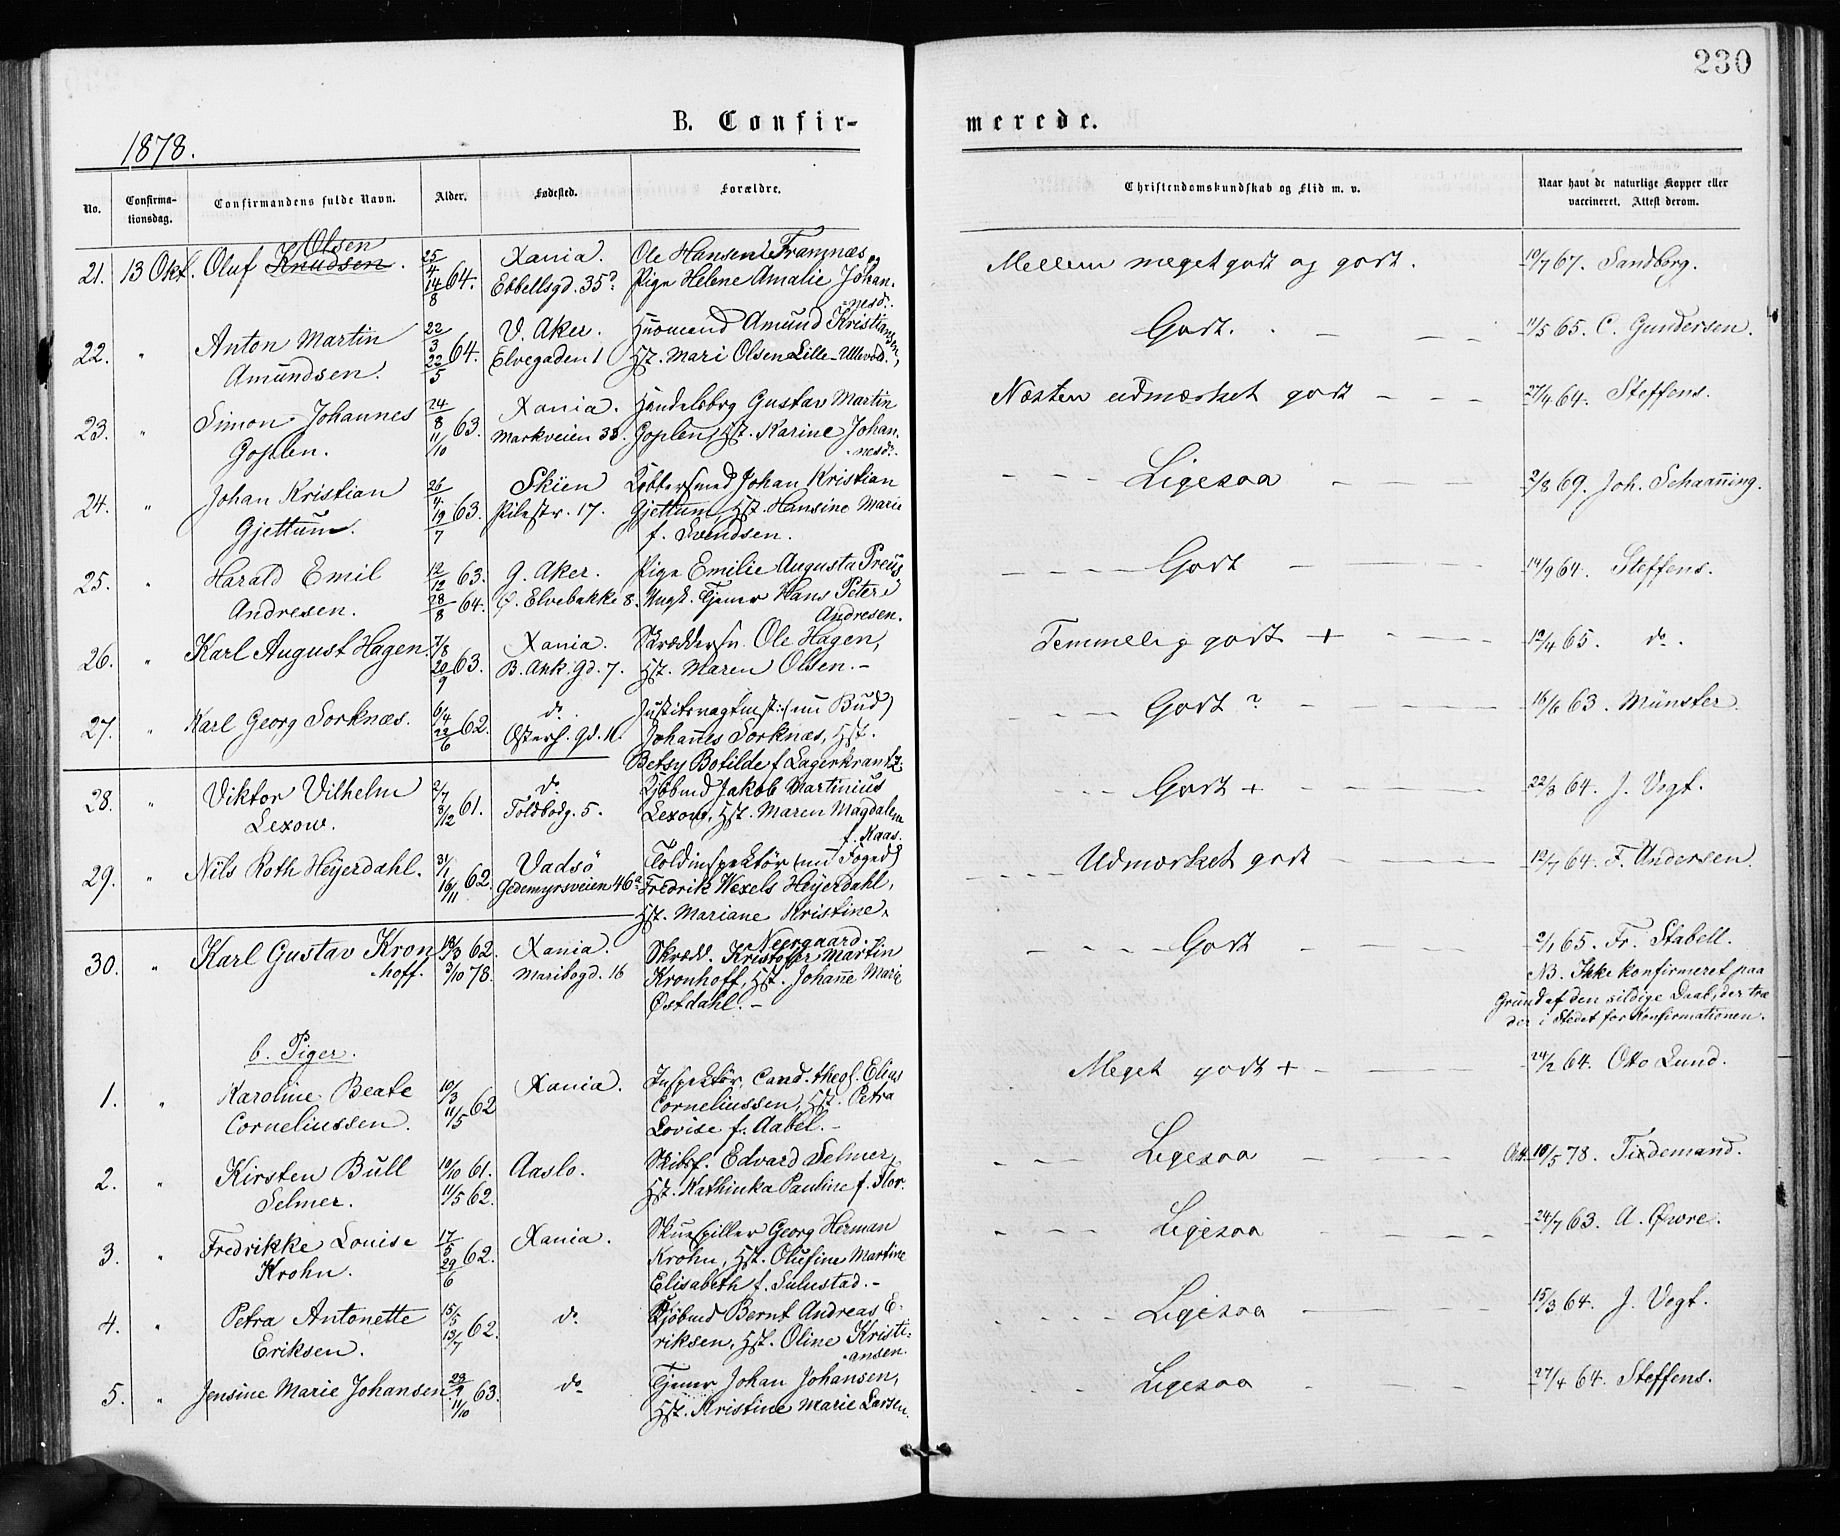 230
B. Confir-
merede.
1878.
No.
Confirma-
tionsdag.
Confirmandens fulde Navn.
Alder.
Fødested.
Forældre.
Christendomskundskab og Flid m. v.
Naar havt de naturlige Kopper eller
vaccineret. Attest derom.
21. 13 Okt. Oluf Knudsen Olsen. 25/4 14/8 64. Xania. Ebbellsgd. 35? Ole Hansen Framnæs og
Pige Helene Amalie Johan-
nesd. Mellem meget godt og godt. 10/7 67. Sandberg.
22. " Anton Martin
Amundsen. 22/3 22/5 64. V. Aker. Elvegaden 1 Husmand Amund Kristiansen,
Hst. Mari Olsen Lille-Ullevold. Godt. 11/5 65. C. Gundersen.
23. " Simon Johannes
Goplen. 24/8 11/10 63. Xania. Markveien 33. Handelsbrg Gustav Martin
Goplen, Hst. Karine Johan-
nesd. Næsten udmærket godt 27/4 64. Steffens.
24. " Johan Kristian
Gjettum. 26/4 19/7 63. Skien Pilestr. 17. Kobbersmed Johan Kristian
Gjettum, Hst. Hansine Marie
f. Svendsen. Ligesaa 2/8 69. Joh. Schanning.
25. " Harald Emil
Andresen. 12/12 63. 28/8 64. G. Aker. Ø. Elvebakke 8. Pige Emilie Augusta Preus
Ungk. Tjener Hans Peter
Andresen. Godt 14/9 64. Steffens.
26. " Karl August Hagen. 7/8 20/9 63. Xania. B. Ank. Gd. 7. Skræddersv. Ole Hagen,
Hst. Maren Olsen. Temmelig godt + 12/4 65. do.
27. " Karl Georg Sorknæs. 6/4 22/6 62. do. Østerh. Gd. 11. Justitsvagtmst. (nu Bud)
Johannes Sorknæs, Hst.
Betsy Botilde f. Lagerkrantz. Godt? 16/6 63. Münster.
28. " Viktor Vilhelm
Lexow. 2/7 3/12 61. do. Toldbodg. 5. Kjøbmd Jakob Martinius
Lexow, Hst. Maren Magdalene
f. Kaas. Godt + 22/3 64. J. Vogt.
29. " Nils Roth Heyerdahl. 31/1 16/11 62. Vadsö Gedemyrsveien 46a Toldinspektör (nu Foged)
Fredrik Wexels Heyerdahl,
Hst. Mariane Kristine
Neergaard. Udmærket godt 12/7 64. F. Andersen.
30. " Karl Gustav Kron-
hoff. 18/3 62. 3/10 78. Xania. Maribogd. 16 Skræd. Kristofer Martin
Kronhoff, Hst. Johanne Marie
Østdahl. Godt 2/1 65. Fr. Stabell.
NB. Ikke konfirmeret paa
Grund af den sildige Daab, der træ
der i Stedet for Konfirmationen.
b. Piger.
1. " Karoline Beate
Corneliussen. 10/3 11/5 62 Xania. Inspektör, Cand. theol. Elias
Corneliussen, Hst. Petra
Lovise f. Aabel. Meget godt + 24/2 64. Otto Lund.
2. " Kirsten Bull
Selmer. 10/10 61. 11/5 62. Aaslo. Skibsf. Edvard Selmer,
Hst. Kathinka Pauline f. Flor. Ligesaa Att. 10/5 78. Tidemand.
3. " Fredrikke Louise
Krohn. 17/5 29/6 62. Xania. Skuespiller Georg Herman
Krohn, Hst. Olufine Martine
Elisabeth f. Sulustad. Ligesaa 24/7 63. A. Øwre.
4. " Petra Antonette
Eriksen. 15/5 13/7 62. do. Kjøbmd Bernt Andreas E-
riksen, Hst. Oline Kristi-
ansen. Ligesaa 15/3 64. J. Vogt.
5. " Jensine Marie Johansen. 23/9 11/10 63. do Tjener Johan Johansen,
Hst. Kristine Marie Larsen. Ligesaa 27/4 64. Steffens.